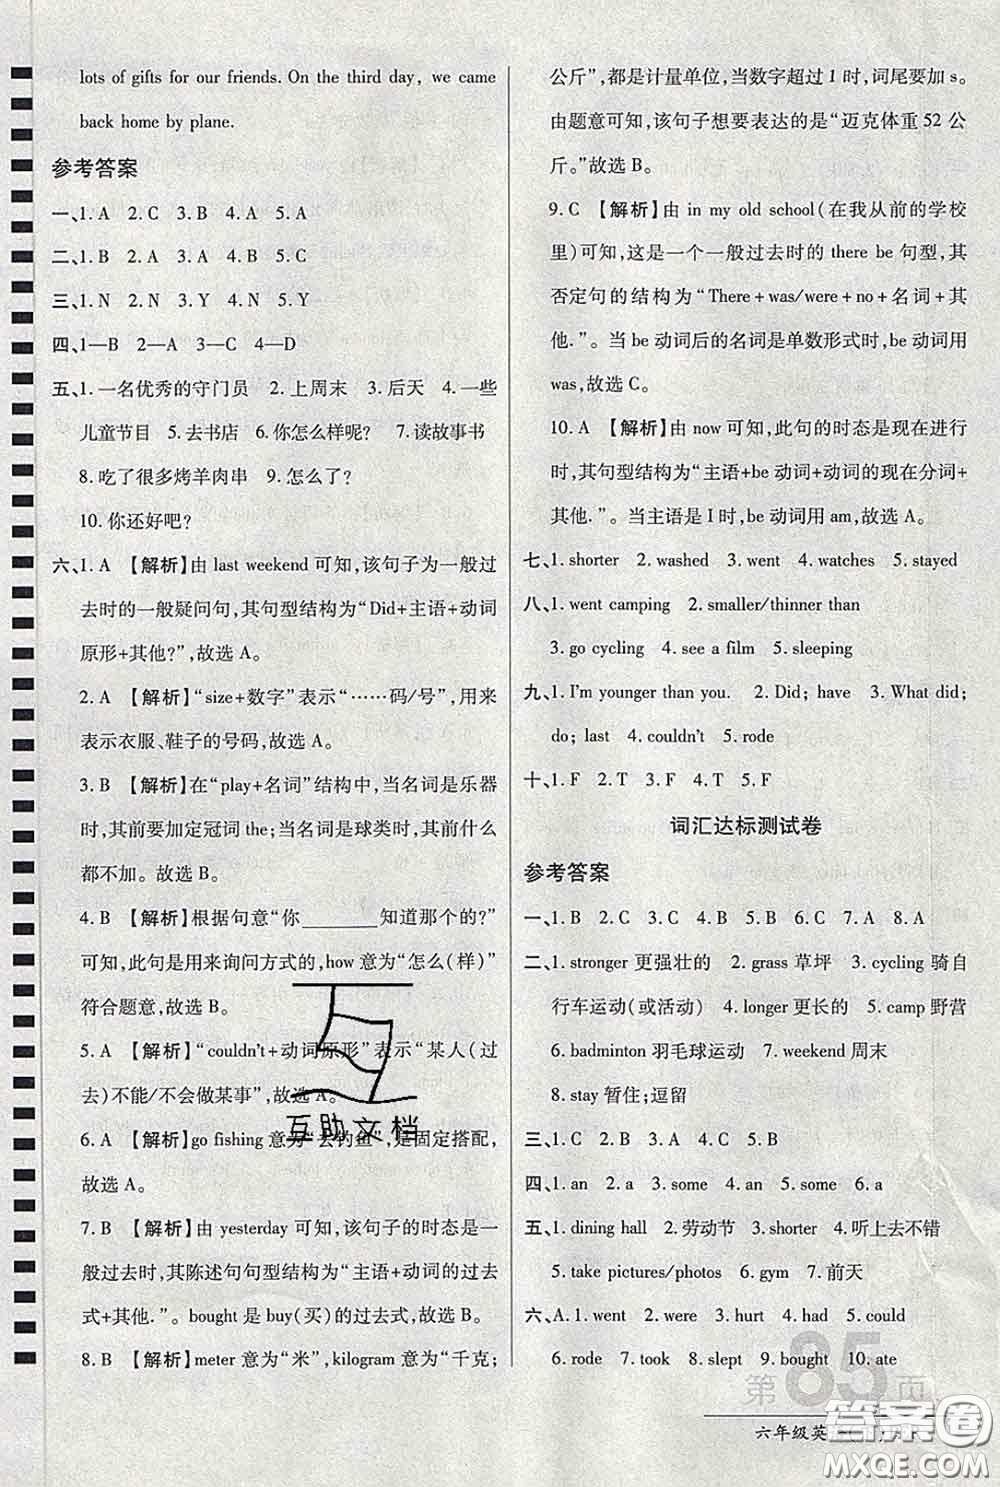 lots of gifts for our friends. On the third day, we came
back home by plane.
参考答案
一、1. A 2. C 3. B 4. A 5. A
二、1. B 2. A 3. A 4. B 5. C
三、1. N 2. N 3. Y 4. N 5. Y
四、1—B 2—A 3—C 4—D
五、1. 一名优秀的守门员 2. 上周末 3. 后天 4. 一些
儿童节目 5. 去书店 6. 你怎么样呢? 7. 读故事书
8. 吃了很多烤羊肉串 9. 怎么了?
10. 你还好吧?
六、1. A 【解析】由 last weekend 可知,该句子为一般过
去时的一般疑问句,其句型结构为“Did+主语+动词
原形+其他?”,故选 A。
2. A 【解析】“size+数字”表示“……码/号”,用来
表示衣服、鞋子的号码,故选 A。
3. B 【解析】在“play+名词”结构中,当名词是乐器
时,其前要加定冠词 the;当名词是球类时,其前什么
都不加。故选 B。
4. B 【解析】根据句意“你________知道那个的?”
可知,此句是用来询问方式的,how 意为“怎么(样)”
符合题意,故选 B。
5. A 【解析】“couldn't+动词原形”表示“某人(过
去)不能/不会做某事”,故选 A。
6. A 【解析】go fishing 意为“去钓鱼”,是固定搭配,
故选 A。
7. B 【解析】由 yesterday 可知,该句子的时态是一
般过去时,其陈述句句型结构为“主语+动词的过去
式+其他.”。bought 是 buy(买)的过去式,故选 B。
8. B 【解析】meter 意为“米”,kilogram 意为“千克;
公斤”,都是计量单位,当数字超过 1 时,词尾要加 s。
由题意可知,该句子想要表达的是“迈克体重 52 公
斤。”故选 B。
9. C 【解析】由 in my old school(在我从前的学校
里)可知,这是一个一般过去时的 there be 句型,其
否定句的结构为“There+was/were+no+名词+其
他.”。当 be 动词后的名词是单数形式时,be 动词用
was,故选 C。
10. A 【解析】由 now 可知,此句的时态是现在进行
时,其句型结构为“主语+be 动词+动词的现在分词+
其他.”。当主语是 I 时,be 动词用 am,故选 A。
七、1. shorter 2. washed 3. went 4. watches 5. stayed
八、1. went camping 2. smaller/thinner than
3. go cycling 4. see a film 5. sleeping
九、1. I'm younger than you. 2. Did; have 3. What did;
do; last 4. couldn't 5. rode
十、1. F 2. T 3. F 4. T 5. F
词汇达标测试卷
参考答案
一、1. B 2. C 3. C 4. B 5. C 6. B 7. A 8. A
二、1. stronger 更强壮的 2. grass 草坪 3. cycling 骑自
行车运动(或活动) 4. longer 更长的 5. camp 野营
6. badminton 羽毛球运动 7. weekend 周末
8. stay 暂住;逗留
三、1. C 2. B 3. A 4. C 5. B
四、1. an 2. a 3. a 4. an 5. a 6. a
五、1. dining hall 2. 劳动节 3. shorter 4. 听上去不错
5. take pictures/photos 6. gym 7. 前天
六、A. 1. went 2. were 3. hurt 4. had 5. could
6. rode 7. took 8. slept 9. bought 10. ate
互助文档
第85页
六年级英
答案圈
MXQE.COM